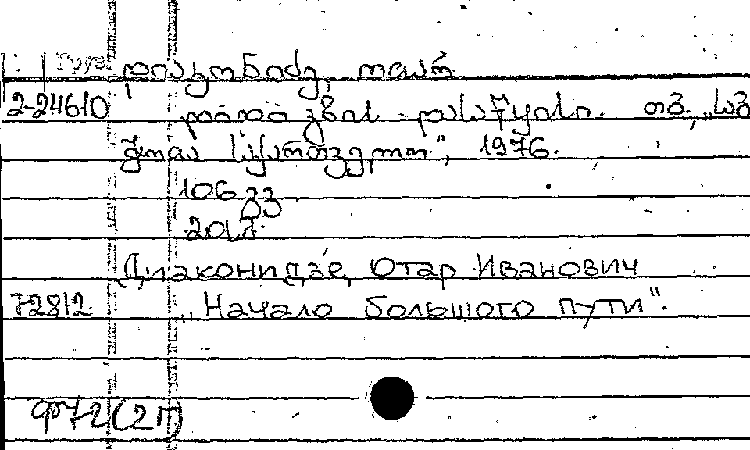 დიაკონიძე, ოთარ
2-24610 დიდი გზის დასაწყისი. თბ., „საბ
ჭოთა საქართველო", 1976.
106 გვ
20 სმ.
Диаконидзе, Отар Иванович
72812 „Начало большого пути".
ფ72(2П)